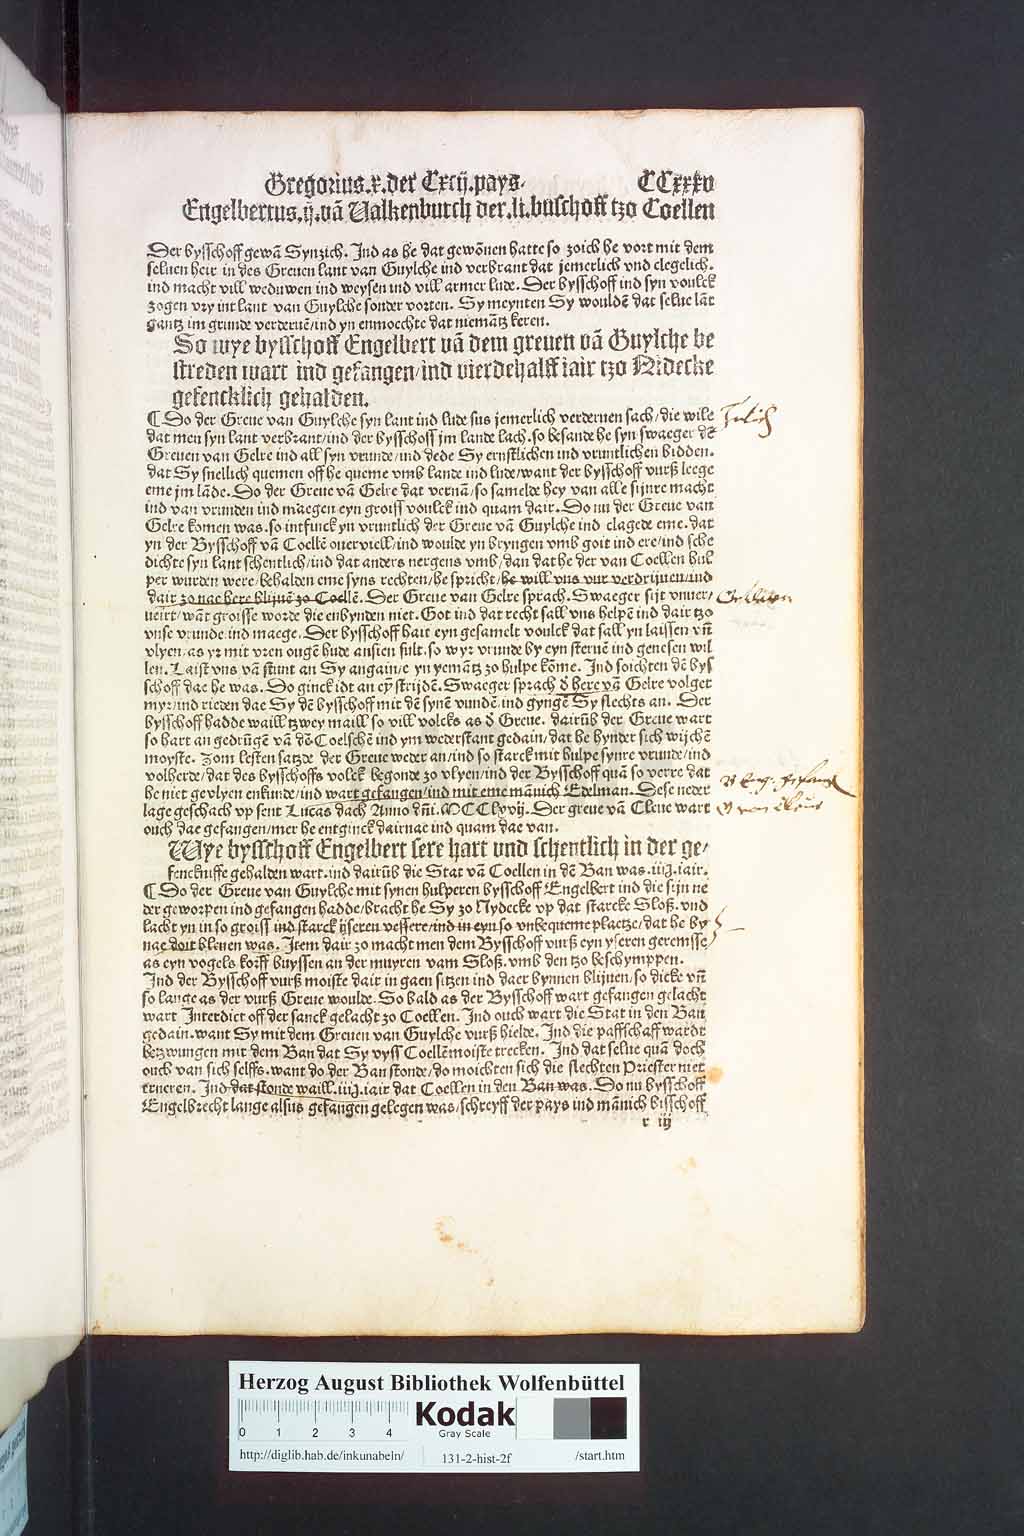 Gregorius.x.der Cxcij.pays. CCxxxv
Engelbertus.ij.vā Valkenburch der.li.buschoff tzo Coellen
Der bysschoff gewā Synzich. Ind as he dat gewōnen hatte so zoich he vort mit dem
seluen heir in des Greuen lant van Guylche ind verbrant dat jemerlich vnd clegelich.
ind macht vill weduwen ind weysen ind vill armer lude. Der bysschoff ind syn voulck
zogen vry int lant van Guylche sonder vorten. Sy meynten Sy wouldē dat selue lāt
gantz im grunde verderuē/ind yn enmoechte dat niemātz keren.
So wye bysschoff Engelbert vā dem greuen vā Guylche be
streden wart ind gefangen/ind vierdehalff iair tzo Nidecke
gefencklich gehalden.
¶ Do der Greue van Guylche syn lant ind lude sus jemerlich verderuen sach/die wile
dat men syn lant verbrant/ind der bysschoff jm lande lach. so besande he syn swaeger dē
Greuen van Gelre ind all syn vrunde/ind dede Sy ernstlichen ind vruntlichen bidden.
dat Sy snellich quemen off he queme vmb lande ind lude/want der bysschoff vurß leege
eme jm lāde. Do der Greue vā Gelre dat vernā/so samelde hey van alle sijnre macht
ind van vrunden ind maegen eyn groiss voulck ind quam dair. Do nu der Greue van
Gelre komen was. so intfinck yn vruntlich der Greue vā Guylche ind clagede eme. dat
yn der Bysschoff vā Coellē ouerviell/ind woulde yn bryngen vmb goit ind ere/ind sche
dichte syn lant schentlich/ind dat anders nergens vmb/dan dat he der van Coellen hul
per wurden were/behalden eme syns rechten/he spricht/he will vns vur verdrijuen/ind
dair zo nae here blijuē zo Coellē. Der Greue van Gelre sprach. Swaeger sijt vnuer/
veirt/wāt groisse worde die enbynden niet. Got ind dat recht sall vns helpē ind dair tzo
vnse vrunde ind maege. Der bysschoff hait eyn gesamelt voulck dat sall yn laissen vñ
vlyen/as yr mit vren ougē hude ansien sult. so wyr vrunde by eyn steruē ind genesen wil
len. Laist vns vā stunt an Sy angain/e yn yemātz zo hulpe kōme. Ind soichten dē bys
schoff dae he was. Do ginck idt an ey strijdē. Swaeger sprach d here vā Gelre volget
myr/ind rieden dae Sy dē bysschoff mit dē synē vundē.ind gyngē Sy slechts an. Der
bysschoff hadde waill tzwey maill so vill volcks as d Greue. dairūb der Greue wart
so hart an gedrūgē vā dē Coelschē ind ym wederstant gedain/dat he hynder sich wijchē
moyste. Zom lesten satzde der Greue weder an/ind so starck mit hulpe synre vrunde/ind
volherde/dat des bysschoffs volck begonde zo vlyen/ind der Bysschoff quā so verre dat
he niet gevlyen enkunde/ind wart gefangen/ind mit eme mānich Edelman. Dese neder
lage geschach vp sent Lucas dach Anno dñi. MCClxvij. Der greue vā Cleue wart
ouch dae gefangen/mer he entginck dairnae ind quam dae van.
Wye bysschoff Engelbert sere hart vnd schentlich in der ge/
fenckniffe gehalden wart.ind dairūb die Stat vā Coellen in dē Ban was.iiij.iair.
¶ Do der Greue van Guylche mit synen hulperen bysschoff Engelbert ind die sijn ne
der geworpen ind gefangen hadde/bracht he Sy zo Nydecke vp dat starcke Sloß.vnd
lacht yn in so groiss ind starck ijseren veffere/ind in eyn so vnbequeme plaetze/dat he by
nae doit bleuen was. Item dair zo macht men dem Bysschoff vurß eyn yseren geremisse
as eyn vogels korff buyssen an der muyren vam Sloß.vmb den tzo beschymppen.
Ind der Bysschoff vurß moiste dair in gaen sitzen ind daer bynnen blijuen.so dicke vñ
so lange as der vurß Greue woulde. So bald as der Bysschoff wart gefangen gelacht
wart Interdict off der sanck gelacht zo Coellen. Ind ouch wart die Stat in den Ban
gedain.want Sy mit dem Greuen van Guylche vurß hielde. Ind die paffschaff wardt
betzwungen mit dem Ban dat Sy vyss Coellē moiste trecken. Ind dat selue quā doch
ouch van sich selffs.want do der Ban stonde/do moichten sich die slechten Priester niet
erneren. Ind dat stonde waill.iiij.iair dat Coellen in den Ban was. Do nu bysschoff
Engelbrecht lange alsus gefangen gelegen was/schreyff der pays ind mānich bisschoff
r iij
Herzog August Bibliothek Wolfenbüttel
0 1 2 3 4 Kodak
Gray Scale
http://diglib.hab.de/inkunabeln/ 131-2-hist-2f /start.htm